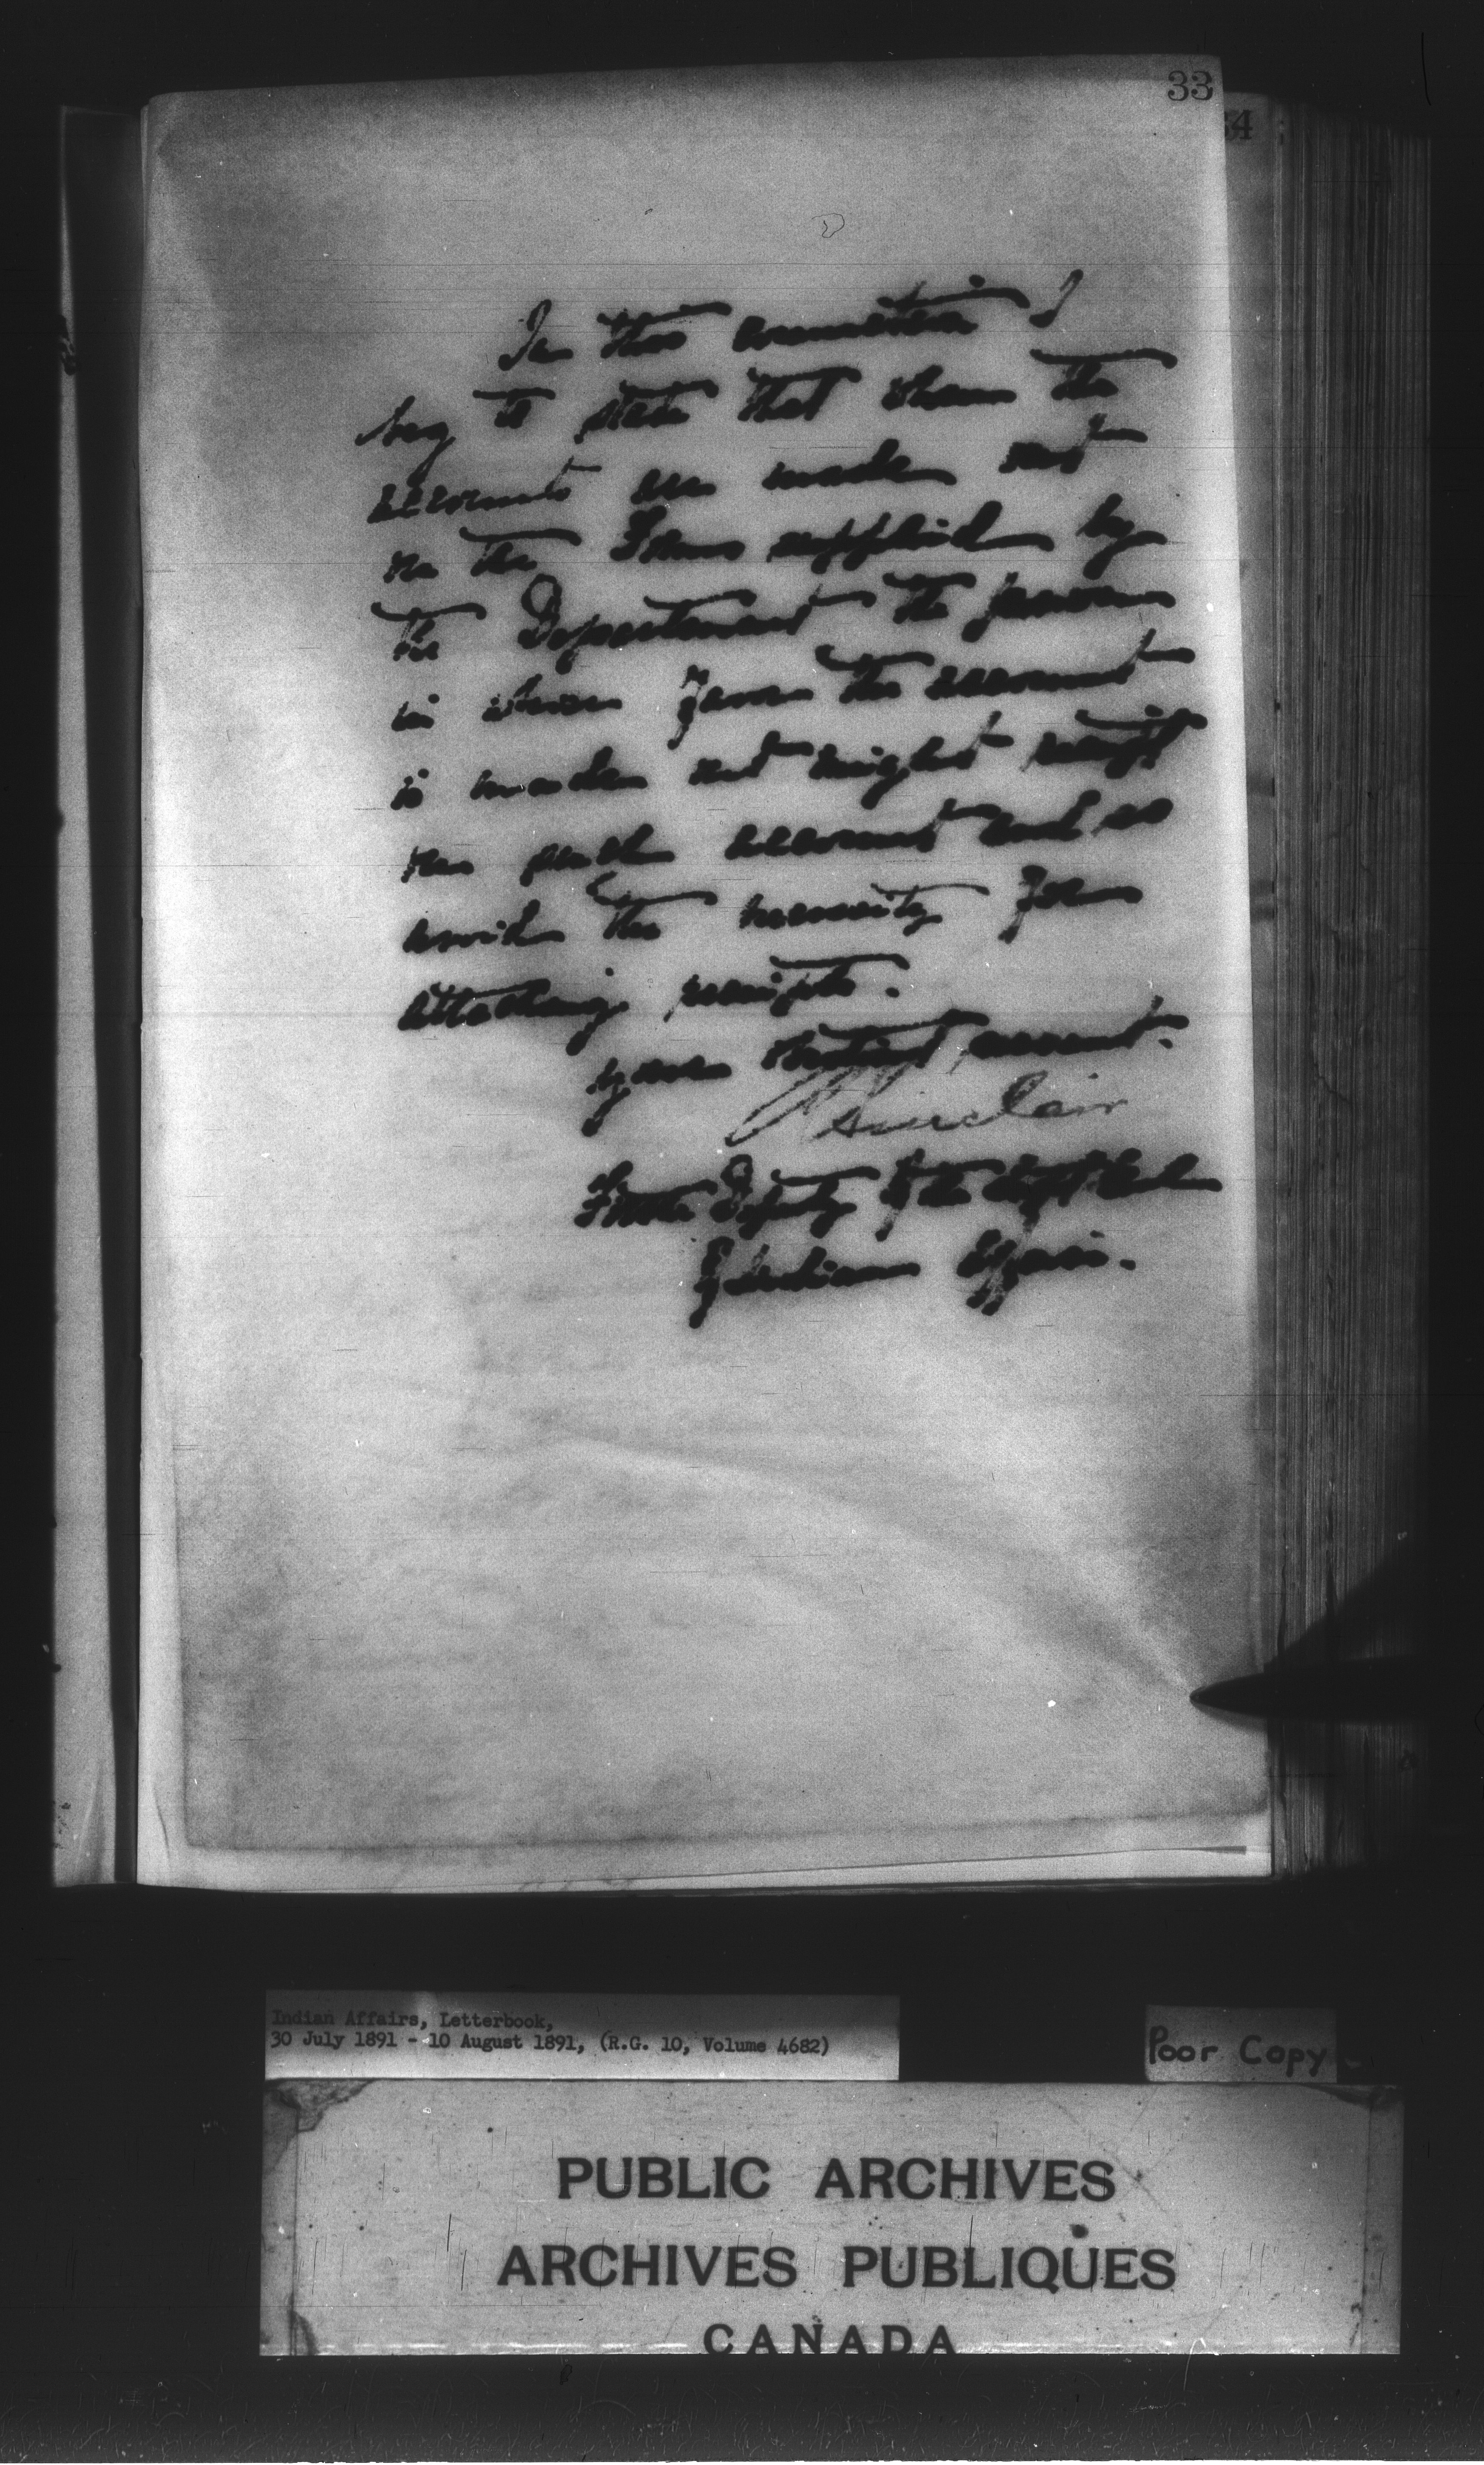 33
34
In this connection I
beg to state that when the
accounts are made out
on the Forms supplied by
the Department the person
in whose favor the account
is made out might receipt
the account and so
avoid the necessity for
attaching receipts.
Your obedient servant.
Sinclair
For the Deputy of the Supt Genl
of Indian Affairs.
Indian Affairs, Letterbook,
30 July 1891 - 10 August 1891, (R.G. 10, Volume 4682)
Poor Copy
PUBLIC ARCHIVES
ARCHIVES PUBLIQUES
CANADA